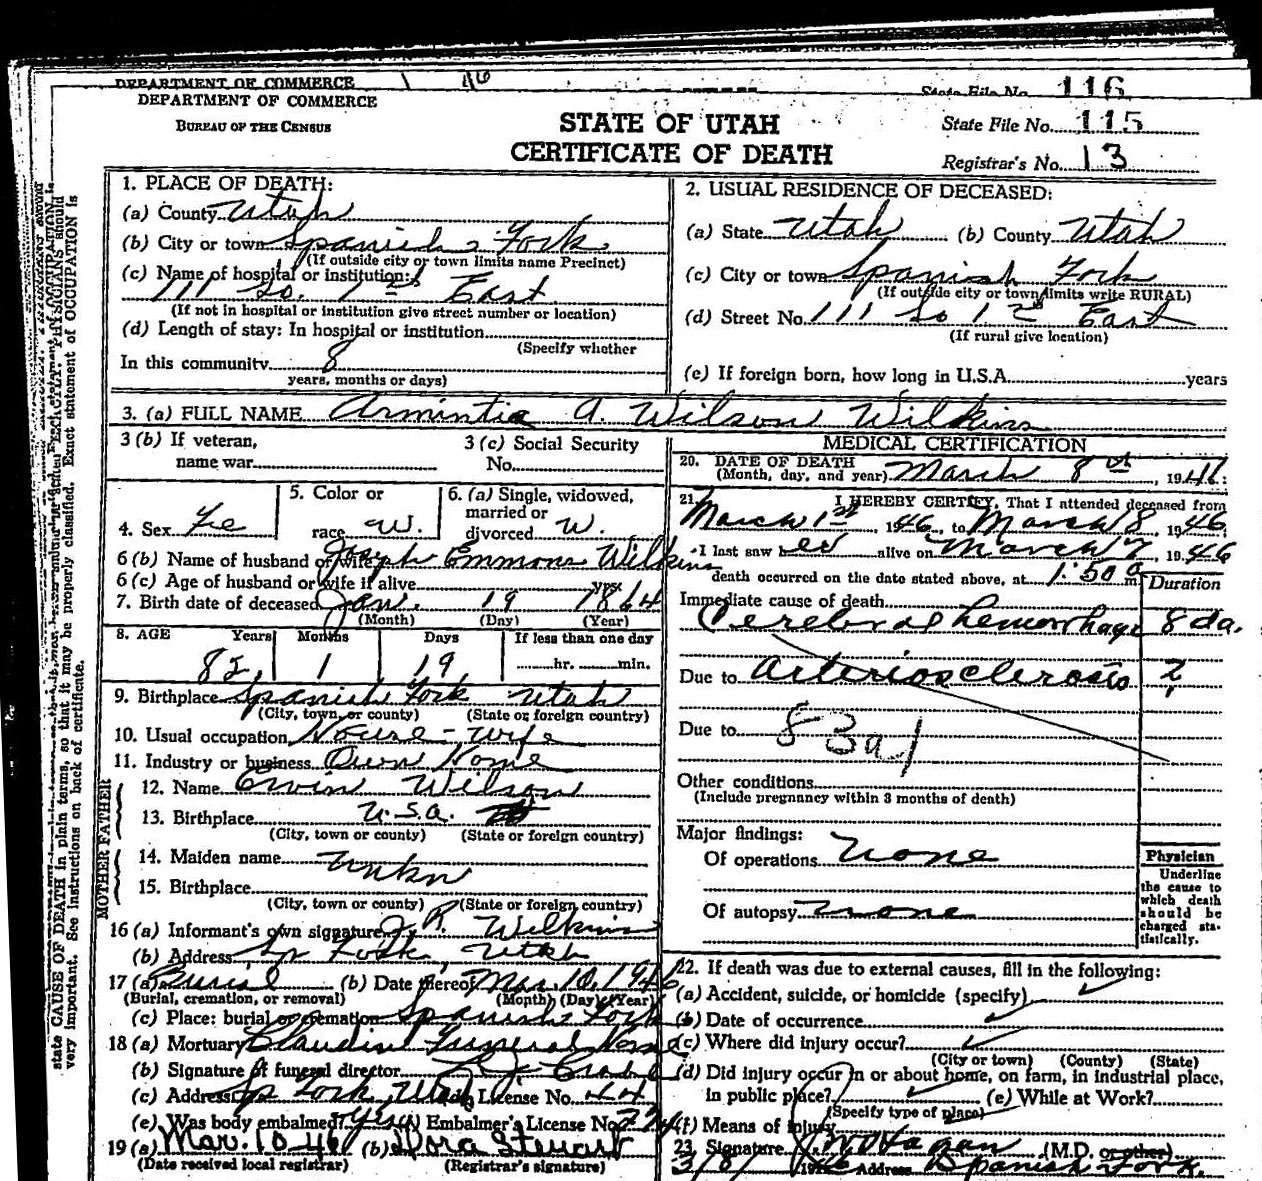 DEPARTMENT OF COMMERCE
State File No. 116
DEPARTMENT OF COMMERCE
BUREAU OF THE CENSUS
STATE OF UTAH
CERTIFICATE OF DEATH
State File No. 115
Registrar's No. 13
1. PLACE OF DEATH:
(a) County Utah
(b) City or town Spanish Fork
(If outside city or town limits name Precinct)
(c) Name of hospital or institution:
111 So. 1st East
(If not in hospital or institution give street number or location)
(d) Length of stay: In hospital or institution
(Specify whether
In this community 8
years, months or days)
2. USUAL RESIDENCE OF DECEASED:
(a) State Utah (b) County Utah
(c) City or town Spanish Fork
(If outside city or town limits write RURAL)
(d) Street No. 111 So 1st East
(If rural give location)
(e) If foreign born, how long in U.S.A. years
3. (a) FULL NAME Armintia A. Wilson Wilkins
3 (b) If veteran,
name war
3 (c) Social Security
No.
4. Sex Fe
5. Color or
race W.
6. (a) Single, widowed,
married or
divorced W.
6 (b) Name of husband or wife Joseph Emmons Wilkins
6 (c) Age of husband or wife if alive yrs.
7. Birth date of deceased Jan. 19 1864
(Month) (Day) (Year)
8. AGE Years Months Days If less than one day
82 1 19 hr. min.
9. Birthplace Spanish Fork Utah
(City, town, or county) (State or foreign country)
10. Usual occupation House-wife
11. Industry or business Own Home
FATHER
12. Name Ervin Wilson
13. Birthplace U.S.A.
(City, town or county) (State or foreign country)
MOTHER
14. Maiden name Unkn
15. Birthplace
(City, town or county) (State or foreign country)
16 (a) Informant's own signature J. R. Wilkins
(b) Address Sp Fork, Utah
17 (a) Burial (b) Date thereof Mar. 10, 1946
(Burial, cremation, or removal) (Month) (Day) (Year)
(c) Place: burial or cremation Spanish Fork
18 (a) Mortuary Claudin Funeral Home
(b) Signature of funeral director
(c) Address Sp Fork, Utah (d) License No. 44
(e) Was body embalmed? Yes (f) Embalmer's License No.
19 (a) Mar. 10-46 (b) Dora Stewart
(Date received local registrar) (Registrar's signature)
MEDICAL CERTIFICATION
20. DATE OF DEATH
(Month, day, and year) March 8th, 1946.
21. I HEREBY CERTIFY, That I attended deceased from
March 1st 1946, to March 8, 1946
I last saw her alive on March 7, 1946
death occurred on the date stated above, at 1:50 a m.
Duration
Immediate cause of death
Cerebral hemorrhage 8 da.
Due to Arteriosclerosis ?
Due to 83a1
Other conditions
(Include pregnancy within 3 months of death)
Major findings:
Of operations none
Of autopsy none
Physician
Underline
the cause to
which death
should be
charged sta-
tistically.
22. If death was due to external causes, fill in the following:
(a) Accident, suicide, or homicide (specify)
(b) Date of occurrence
(c) Where did injury occur?
(City or town) (County) (State)
(d) Did injury occur in or about home, on farm, in industrial place,
in public place? (e) While at Work?
(Specify type of place)
(f) Means of injury
23. Signature J. W. Hagan (M.D. or other)
3/8/1946 Address Spanish Fork.
state CAUSE OF DEATH in plain terms, so that it may be properly classified. Exact statement of OCCUPATION is
very important. See instructions on back of certificate.